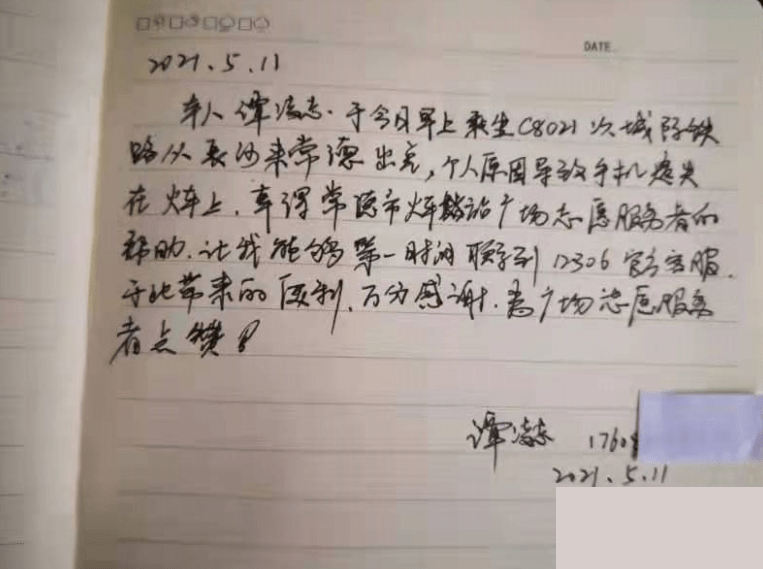 DATE.
2021.5.11
本人谭凌志.于今日早上乘坐C8021次城际铁
路从长沙来常德出差,个人原因导致手机遗失
在火车上.幸得常德市火车站广场志愿服务者的
帮助.让我能够第一时间联系到12306官方客服.
于此带来的便利.万分感谢.为广场志愿服务
者点赞!
谭凌志 1760
2021.5.11